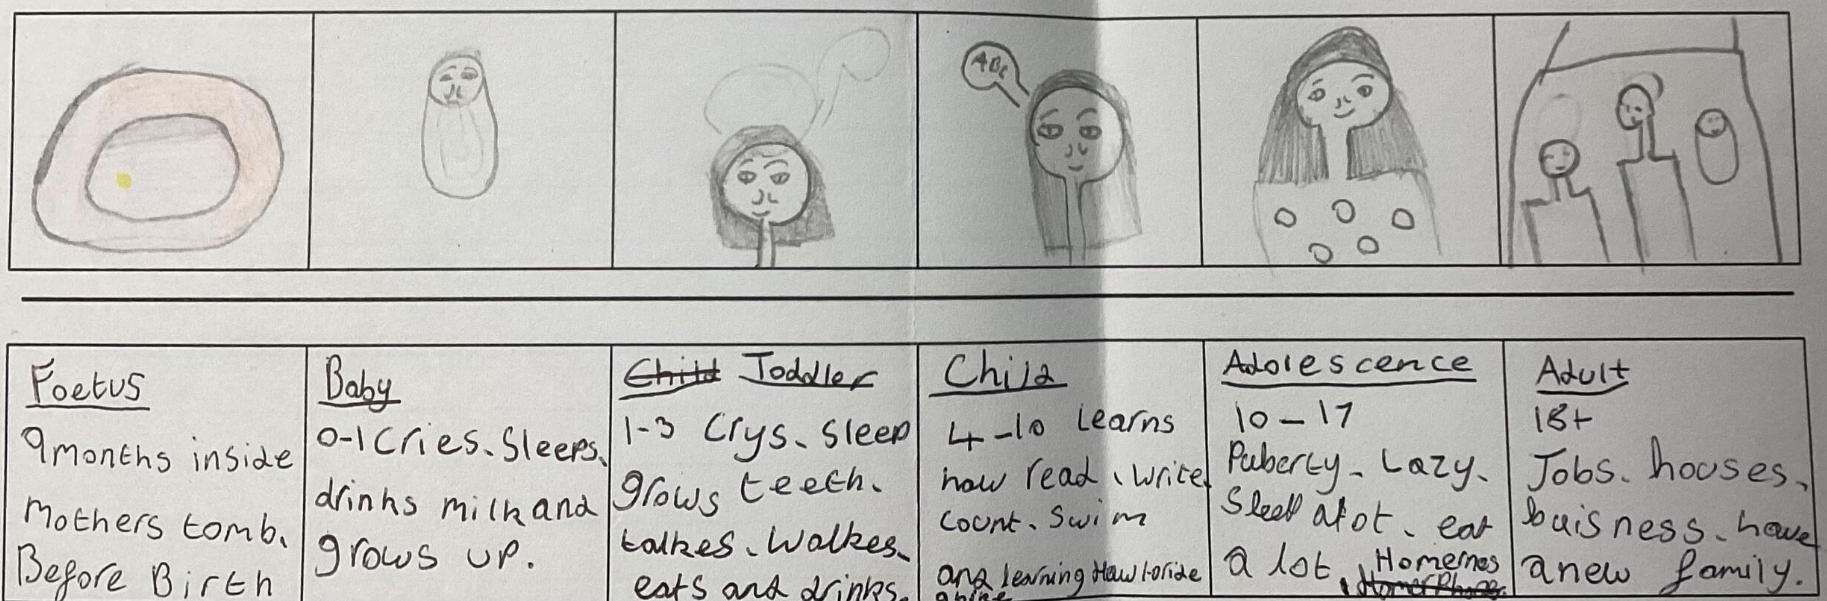 ABC
Foetus
9 months inside
mothers tomb.
Before Birth
Baby
0-1 Cries. Sleeps.
drinks milk and
grows up.
Child Toddler
1-3 Crys. Sleep
grows teeth.
talkes. Walkes.
eats and drinks.
Child
4-10 Learns
how read. write
count. Swim
and learning How to ride
a bike
Adolescence
10-17
Puberty. Lazy.
Sleep alot. eat
a lot. Homernes
Adult
18+
Jobs. houses.
buisness. have
a new family.